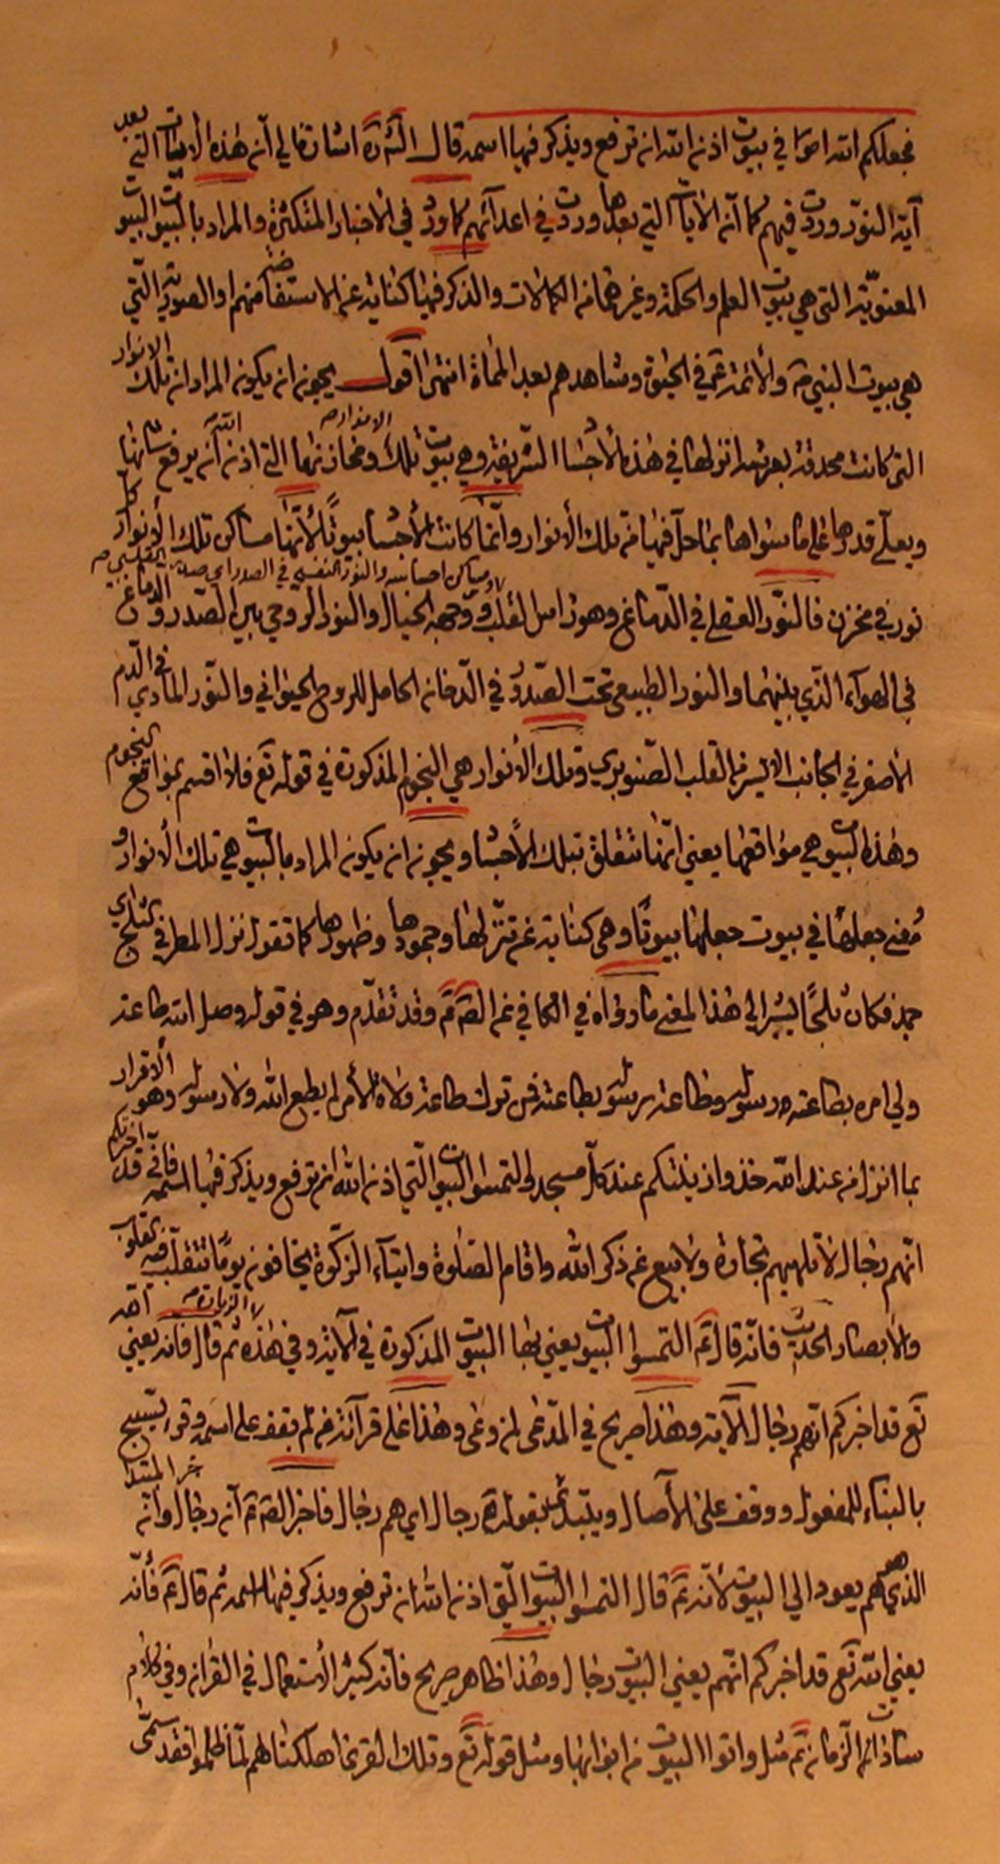 فجعلكم الله اصوا في بيوت اذن الله ان ترفع ويذكر فيها اسمه قال الش ره اشارة الى ان هذه الايات التي بعد
آية النور وردت فيهم كما ان الايات التي بعدها وردت في اعدائهم كما ورد في الاخبار المتكثرة والمراد بالبيوت البيوت
المعنوية التي هي بيوت العلم والحكمة وغيرهما من الكمالات والذكر فيها كناية عن الاستفاضة منهم او الصورية التي
هي بيوت النبي ص والأئمة ع في الحيوة ومشاهدهم بعد المماة انتهى اقول يجوز ان يكون المراد ان تلك الانوار
التي كانت محدقة بعرشه انزلها في هذه الأجساد الشريفة وهي بيوت تلك الانوار ومخازنها التي اذن الله أن يرفع شأنها
ويعلّى قدرها على ما سواها بما حل فيها من تلك الأنوار وانما كانت الأجساد بيوتًا لأنها مساكن تلك الأنوار كل
نور في مخزن فالنور العقلي في الدماغ وهو زاهر القلب ووجهه الخيال والنور النفسي في الصدر والنور الروحي بين الصدر والدماغ
في الهواء الذي بينهما والنور الطبيعي تحت الصدر في الدخان الحامل للروح الحيواني والنور المادي في الدم
الأصفر في الجانب الايسر من القلب الصنوبري وتلك الأنوار هي النجوم المذكورة في قوله تع فلا اقسم بمواقع النجوم
وهذه البيوت هي مواقعها يعني انها تتعلق بتلك الأجساد ويجوز ان يكون المراد بالبيوت هي تلك الأنوار و
معنى جعلها في بيوت جعلها بيوتًا وهي كناية عن تنزلها وجمودها وظهورها كما تقول نزل المطر في الثلج اي
جمد فكان ثلجًا يشير الى هذا المعنى ما رواه في الكافي عن الص ع وقد تقدم وهو في قوله وصل الله طاعة
ولي امره بطاعة رسوله وطاعة رسوله بطاعته فمن ترك طاعة ولاة الأمر لم يطع الله ولا رسوله وهو الاقرار
بما انزل من عند الله خذوا زينتكم عند كل مسجد والتمسوا البيوت التي اذن الله ان ترفع ويذكر فيها اسمه فانه قد اخبركم
انهم رجال لا تلهيهم تجارة ولا بيع عن ذكر الله واقام الصلوة وايتاء الزكوة يخافون يومًا تتقلب فيه القلوب
والأبصار الحديث فانه قال ع التمسوا البيوت يعني بها البيوت المذكورة في الآية وفي هذه الزيارة ثم قال فانه يعني الله
تع قد اخبركم انهم رجال الآية وهذا صريح في المدعى لمن وعى وهذا على قراءة من لم يقف على اسمه وقرء يسبح
بالبناء للمفعول ووقف على الأصال ويبتدئ بقوله رجال اي هم رجال فاخبر الص ع أنه رجال وانه خبر المبتدا
الذي هو هم يعود الى البيوت لأنه ع قال التمسوا البيوت التي اذن الله ان ترفع ويذكر فيها اسمه ثم قال ع فانه
يعني الله تع قد اخبركم انهم يعني البيوت رجال وهذا ظاهر صريح فانه كثير الاستعمال في القرآن وفي كلام
سادات الزمان ع مثل واتوا البيوت من ابوابها ومثل قوله تع وتلك القرى اهلكناهم لما ظلموا فقد سمى